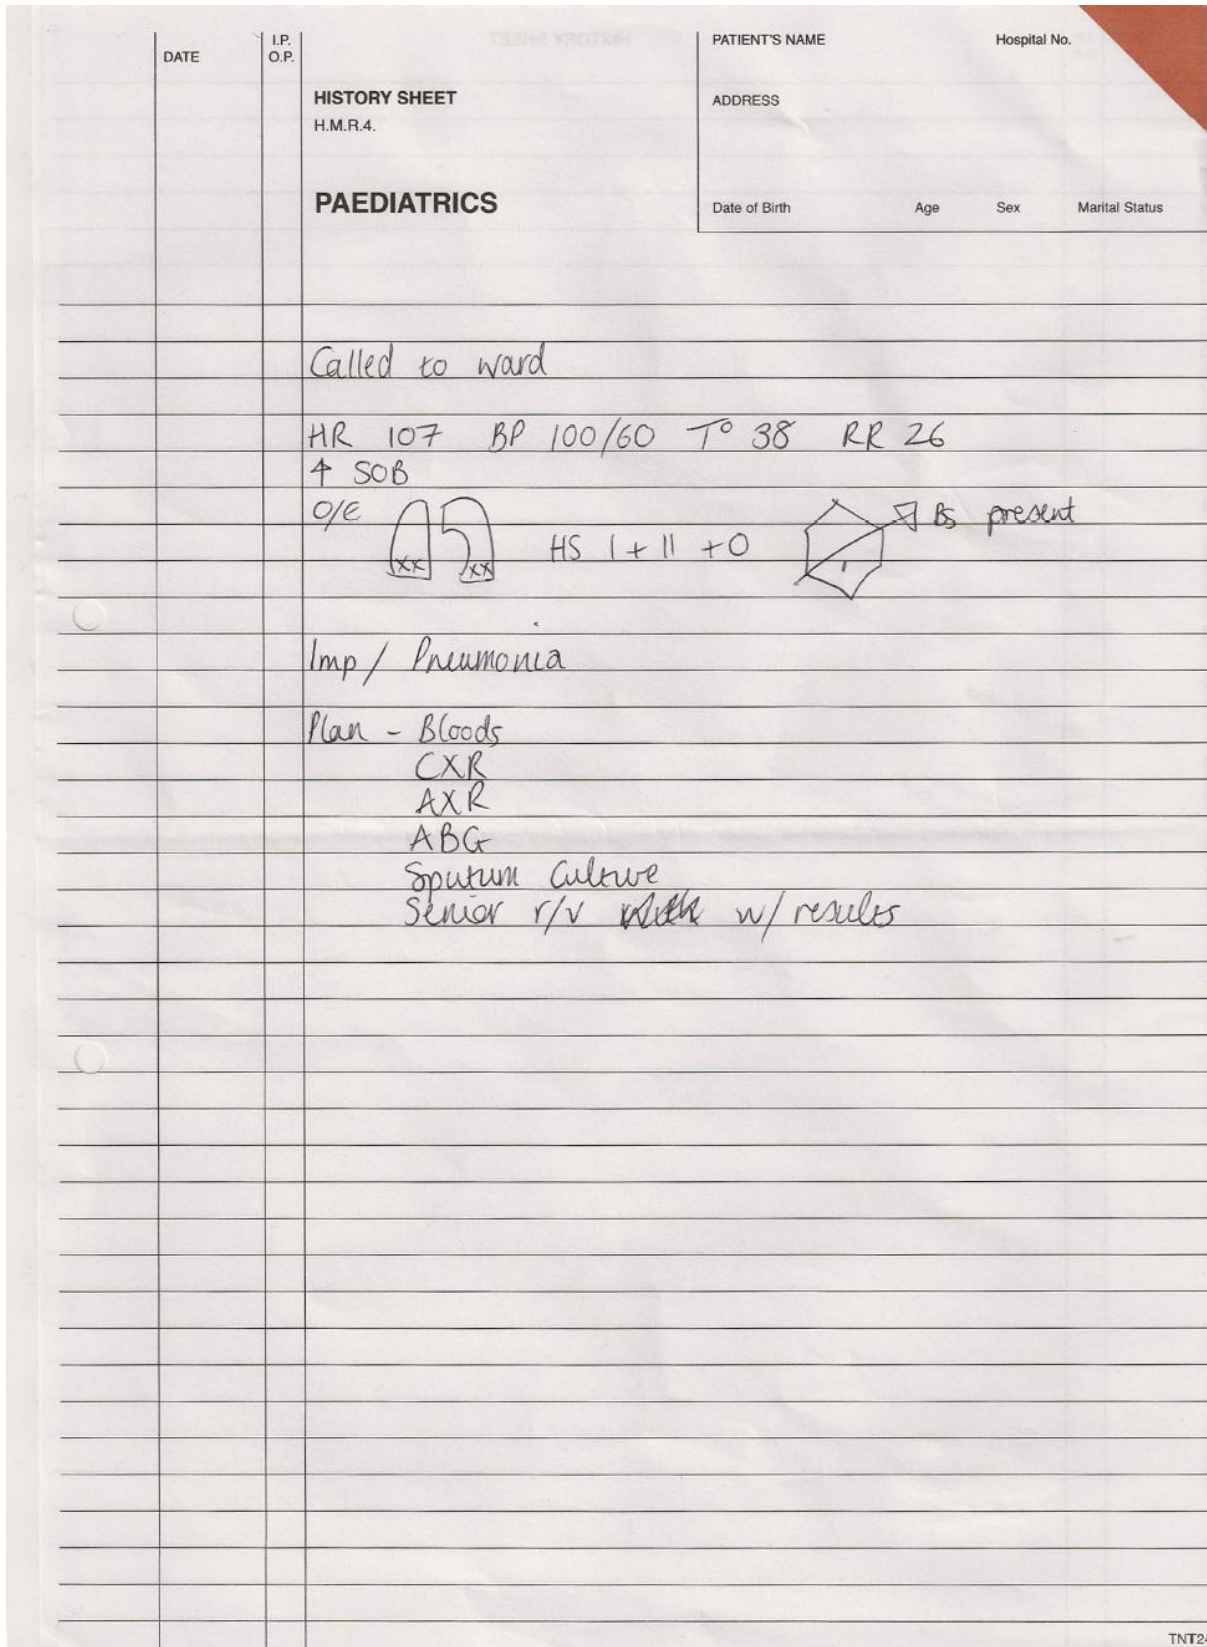 DATE
I.P.
O.P.
HISTORY SHEET
H.M.R.4.
PAEDIATRICS
PATIENT'S NAME Hospital No.
ADDRESS
Date of Birth Age Sex Marital Status
Called to ward
HR 107 BP 100/60 T° 38 RR 26
↑ SOB
O/E xx xx HS I + II + O BS present
Imp / Pneumonia
Plan - Bloods
CXR
AXR
ABG
Sputum Culture
Senior r/v w/ results